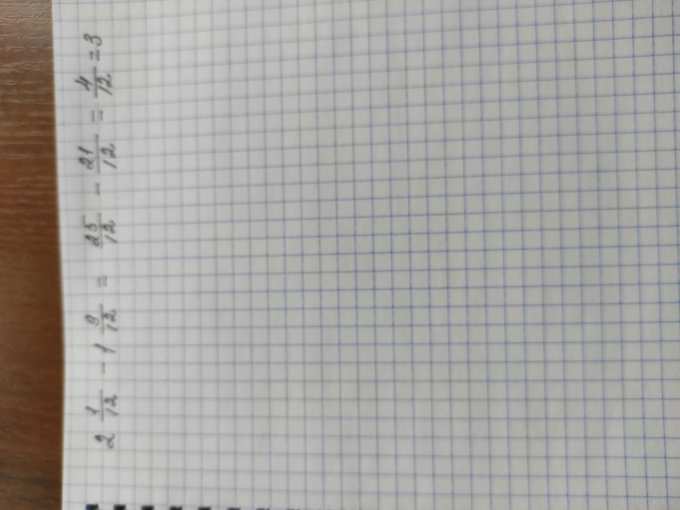 2 1/12 - 1 9/12 = 25/12 - 21/12 = 4/12 = 3